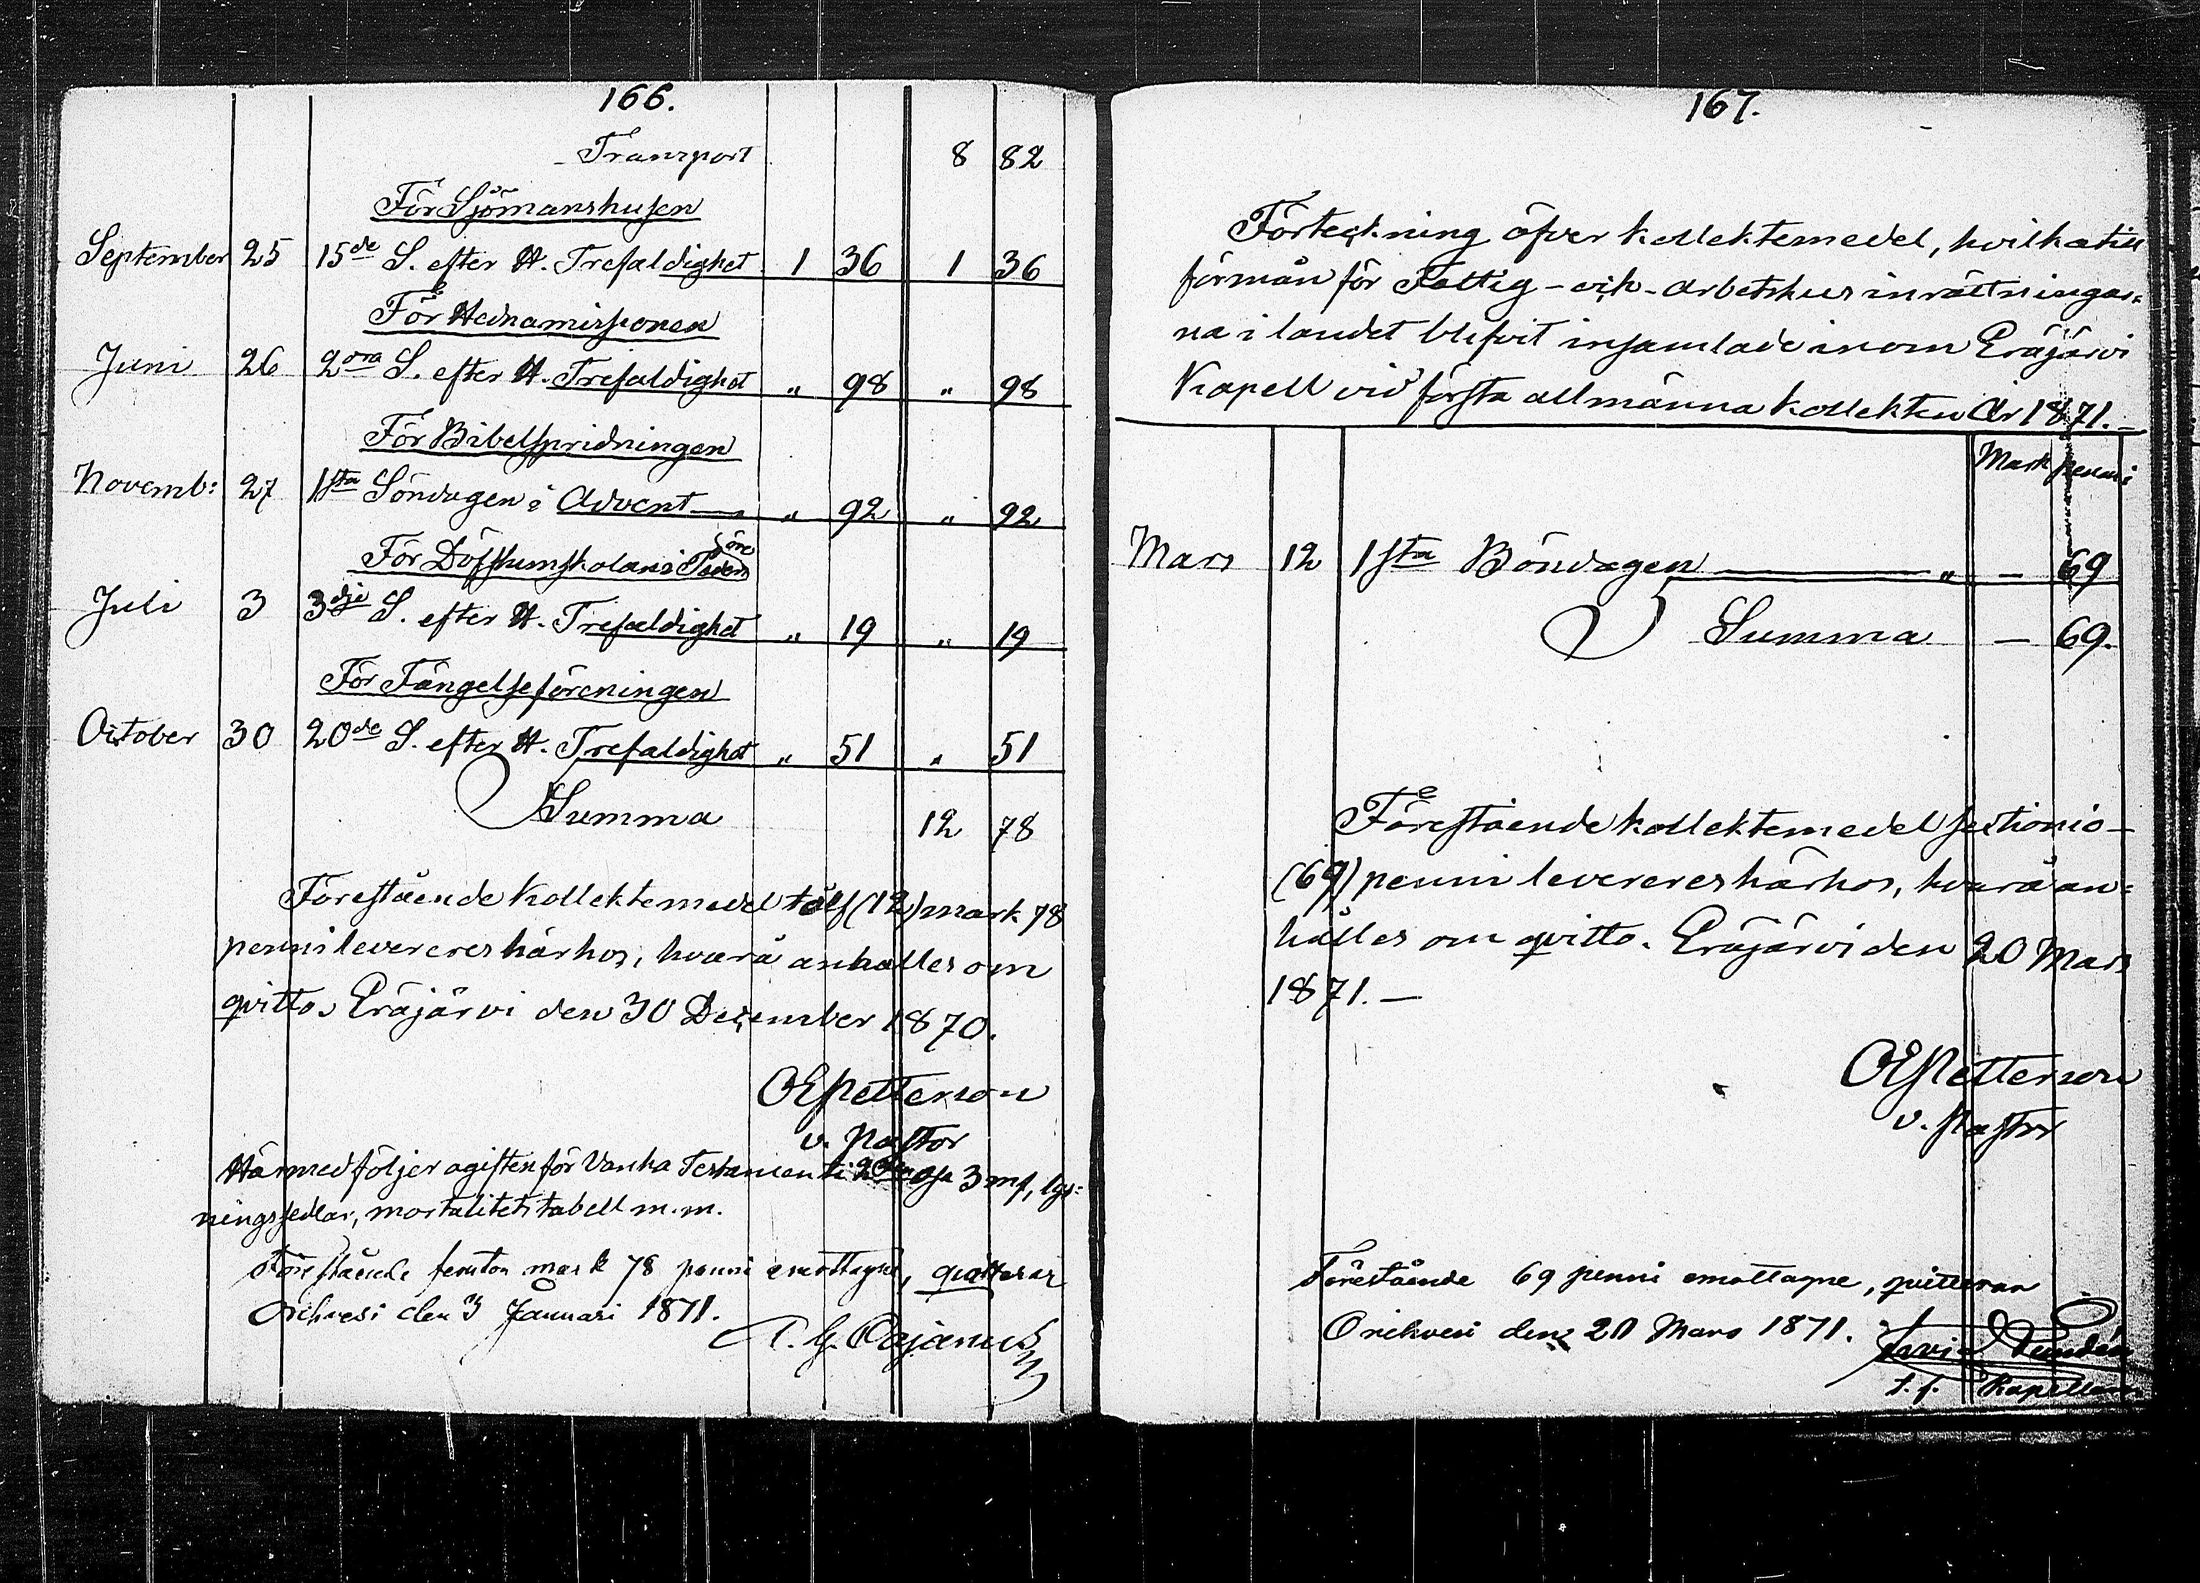 166.
Transport 8 82
För Sjömanshusen
September 25 15de S. efter H. Trefaldighet 1 36 1 36
För Hednamissionen
Juni 26 2ora S. efter H. Trefaldighet " 98 " 98
För Bibelspridningen
Novemb: 27 1sta Söndagen i Advent " 92 " 92
För Döfstumskolan i
Juli 3 3dje S. efter H. Trefaldighet " 19 " 19
För Fängelseföreningen
October 30 20de S. efter H. Trefaldighet " 51 " 51
Summa 12 78
Förestående Kollektemedel tolf (12) mark 78
penni levereres härhos, hvarå anhålles om
qvitto. Eräjärvi den 30 December 1870.
OEPetterson
v. Pastor
Härmed följer agiften för Vanha Testamenti 3 mk, lys-
ningssedlar, mortalitets tabell m.m.
Förestående femton mark 78 penni emottagne, qvitterar
Orihvesi den 3 Januari 1871.
167.
Förteckning öfver kollektemedel, hvilka till
förmån för Fattig- och Arbetshus inrättningar-
na i landet blifvit insamlade inom Eräjärvi
Kapell vid första allmänna kollekten År 1871.-
Mark penni
Mars 12 1sta Böndagen " - 69
Summa - 69.
Förestående kollektemedel sextionio-
(69) penni levereres härhos, hvarå an-
hålles om qvitto. Eräjärvi den 20 Mars
1871.-
OEPetterson
v. Pastor
Förestående 69 penni emottagne, qvitteras
Orihvesi den 20 Mars 1871.
t.f. Kapellan